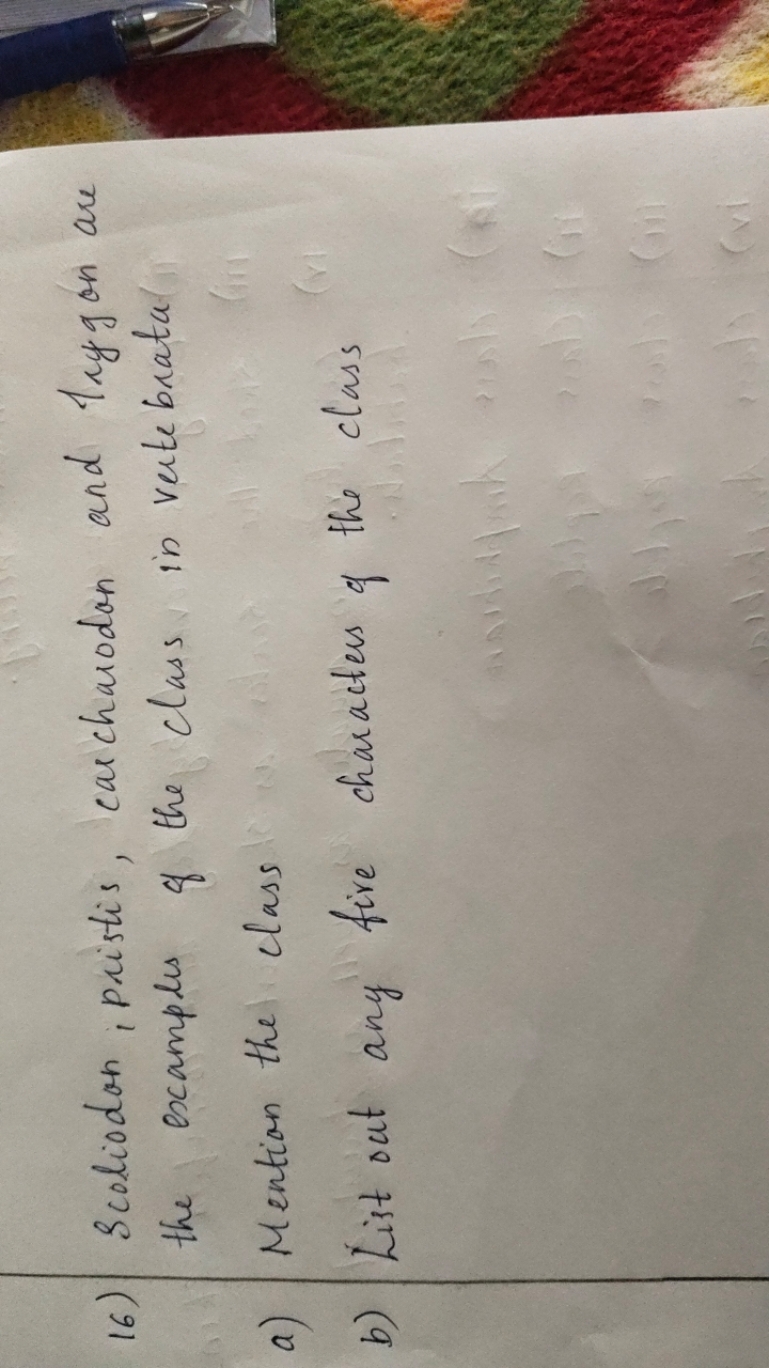 16) Scoliodon, pristis, carcharodon and Trygon are
the examples of the class in vertebrata
a) Mention the class
b) List out any five characters of the class